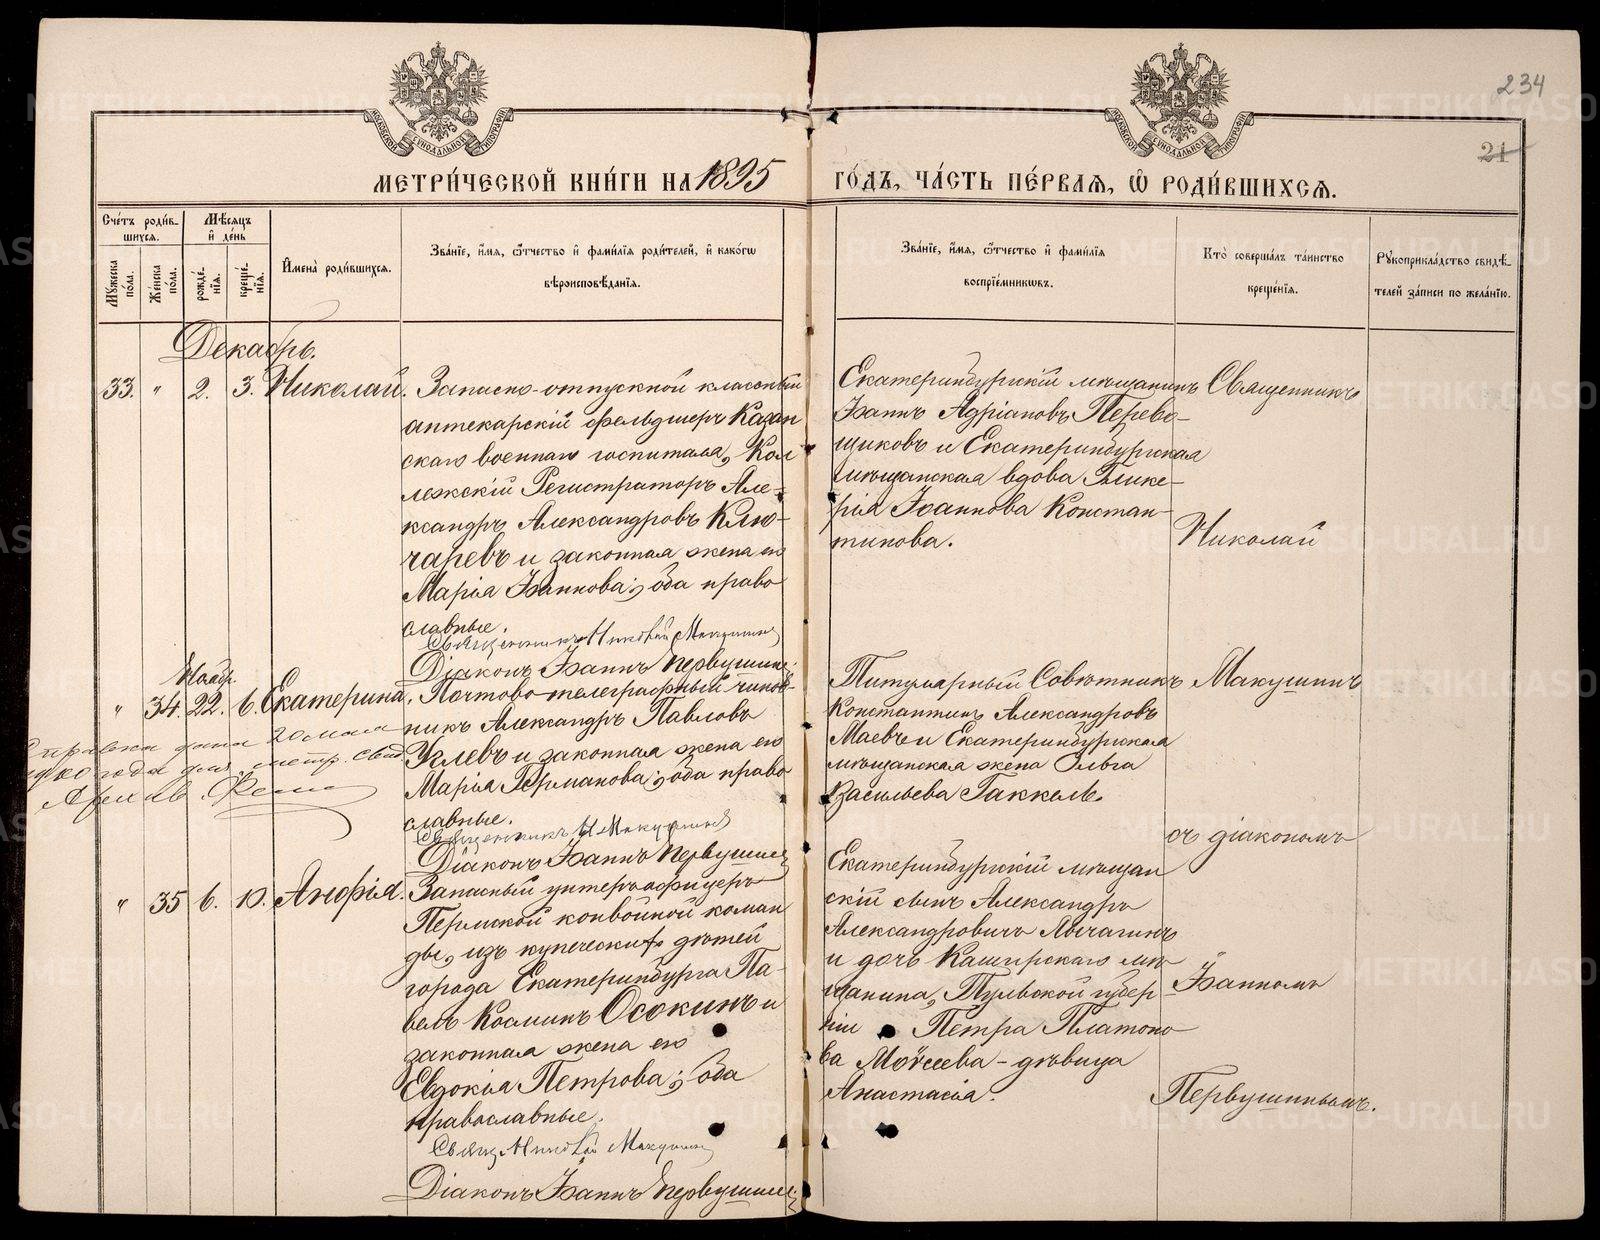 234
21
МОСКОВСКОЙ СѴНОДАЛЬНОЙ ТИПОГРАФІИ
МОСКОВСКОЙ СѴНОДАЛЬНОЙ ТИПОГРАФІИ
МЕТРИ́ЧЕСКОЙ КНИ́ГИ НА 1895 ГО́ДЪ, ЧА́СТЬ ПЕ́РВАЯ, Ѡ҆ РОДИ́ВШИХСЯ.
Сче́тъ роди́в-
шихся.
Мꙋжеска по́ла.
Же́нска по́ла.
Мѣ́сяцъ
и҆ де́нь
рожде́-
нїѧ.
креще́-
нїѧ.
И҆мена̀ роди́вшихся.
Зва́нїе, и҆́мя, ѻ҆́тчество и҆ фами́лїя роди́телей, и҆ како́гѡ
вѣроисповѣ́данїя.
Зва́нїе, и҆́мя, ѻ҆́тчество и҆ фами́лїя
воспрїе́мникѡвъ.
Кто̀ соверша́лъ та́инство
креще́нїя.
Рꙋкоприкла́дство свидѣ́-
телей за́писи по жела́нїю.
Декабрь.
33. " 2. 3. Николай.
Запасно-отпускной классный
аптекарскій фельдшеръ Казан
скаго военнаго госпиталя, Кол
лежскій Регистраторъ Але-
ксандръ Александровъ Клю-
чаревъ и законная жена его
Марія Іоаннова; оба право
славные.
Священникъ Николай Макушинъ
Діаконъ Іоаннъ Первушинъ
Екатеринбургскій мѣщанинъ
Іоаннъ Адріановъ Перево-
щиковъ и Екатеринбургская
мѣщанская вдова Глике-
рія Іоаннова Констан-
тинова.
Священникъ
Николай
Ноябр.
" 34. 22. 6. Екатерина.
Справка дана 20 мая
года для метр. свид.
Почтово-телеграфный чинов-
никъ Александръ Павловъ
Углевъ и законная жена его
Марія Германова; оба право
славные.
Священникъ Н Макушинъ
Діаконъ Іоаннъ Первушинъ
Титулярный Совѣтникъ
Константинъ Александровъ
Маевъ и Екатеринбургская
мѣщанская жена Ольга
Васильева Гаккель.
Макушинъ
съ діакономъ
" 35 6. 10. Анфія.
Запасный унтеръ-офицеръ
Пермской конвойной коман
ды, изъ купеческихъ дѣтей
города Екатеринбурга Па-
велъ Косминъ Осокинъ и
законная жена его
Евдокія Петрова; оба
православные.
Свящ Николай Макушинъ
Діаконъ Іоаннъ Первушинъ
Екатеринбургскій мѣщан
скій сынъ Александръ
Александровичъ Лычагинъ
и дочь Каширскаго мѣ-
щанина, Тульской губер-
ніи Петра Платоно
ва Моѵсеева - дѣвица
Анастасія.
Іоанномъ
Первушинымъ.
METRIKI.GASO-URAL.RU